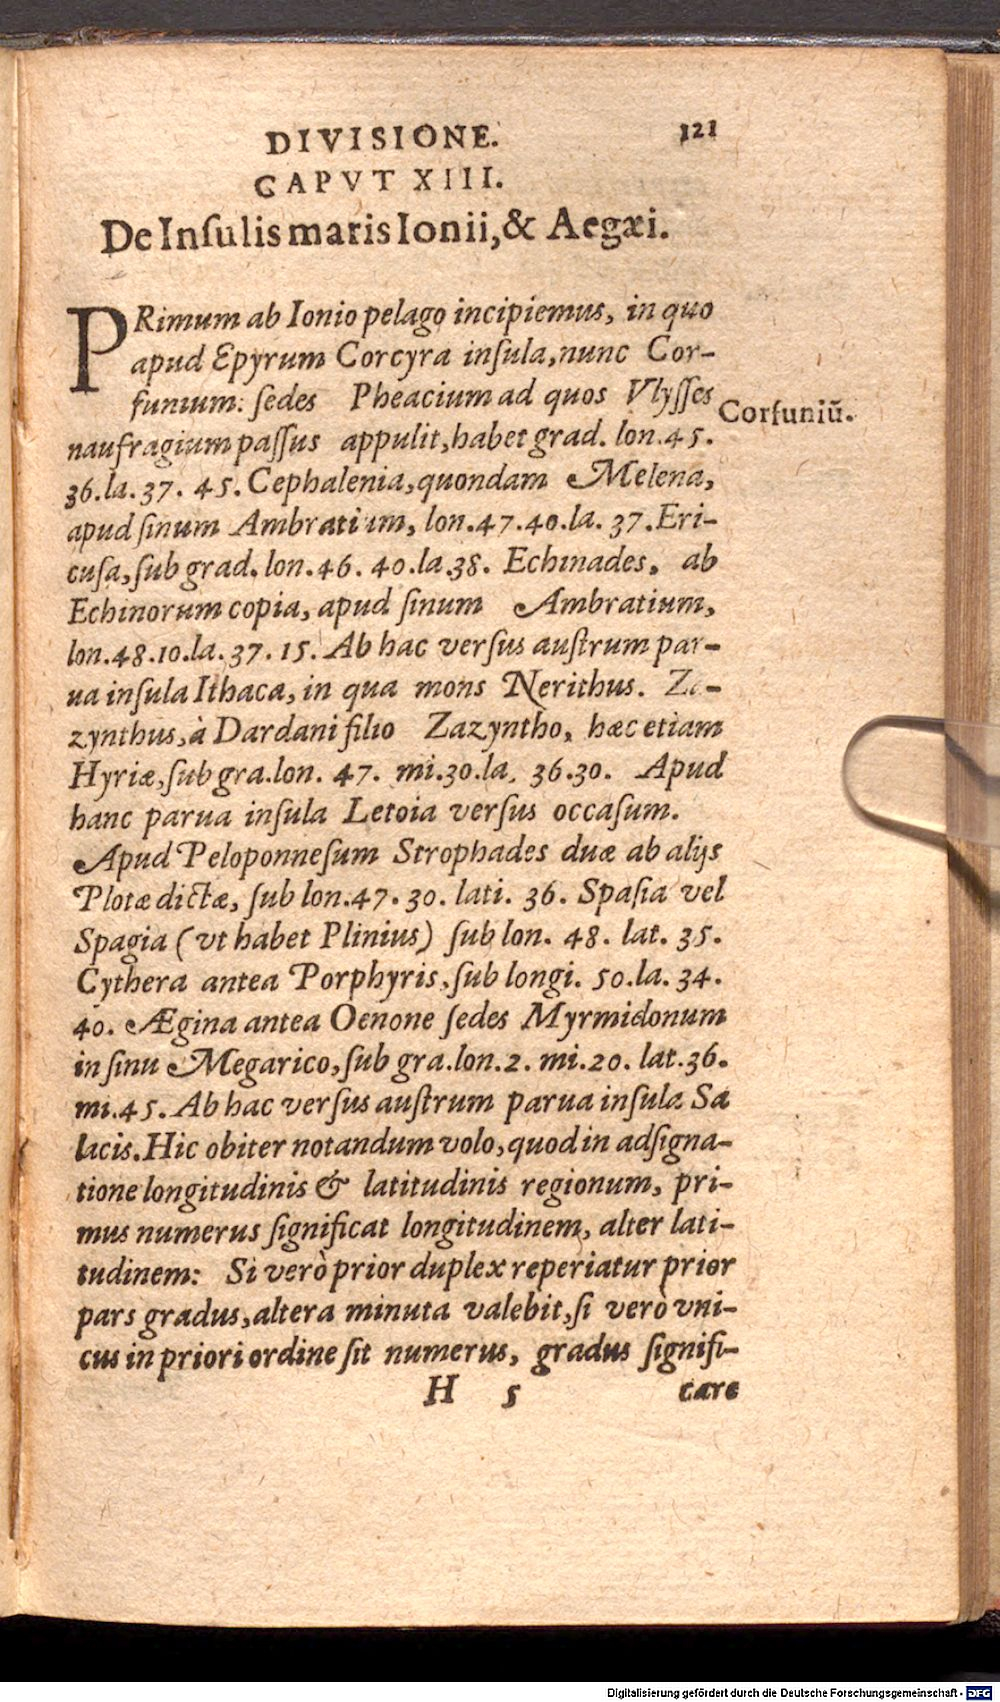 DIVISIONE. 121
CAPVT XIII.
De Inſulis maris Ionii, & Aegæi.
PRimum ab Ionio pelago incipiemus, in quo
apud Epyrum Corcyra inſula, nunc Cor-
funium: ſedes Pheacium ad quos Vlyſſes
Corfuniũ.
naufragium paſſus appulit, habet grad. lon. 45.
36. la. 37. 45. Cephalenia, quondam Melena,
apud ſinum Ambratium, lon. 47. 40. la. 37. Eri-
cuſa, ſub grad. lon. 46. 40. la. 38. Echinades, ab
Echinorum copia, apud ſinum Ambratium,
lon. 48. 10. la. 37. 15. Ab hac verſus auſtrum par-
ua inſula Ithaca, in qua mons Nerithus. Za-
zynthus, à Dardani filio Zazyntho, hæc etiam
Hyriæ, ſub gra. lon. 47. mi. 30. la. 36. 30. Apud
hanc parua inſula Letoia verſus occaſum.
Apud Peloponneſum Strophades duæ ab alijs
Plotæ dictæ, ſub lon. 47. 30. lati. 36. Spaſia vel
Spagia (vt habet Plinius) ſub lon. 48. lat. 35.
Cythera antea Porphyris, ſub longi. 50. la. 34.
40. Ægina antea Oenone ſedes Myrmidonum
in ſinu Megarico, ſub gra. lon. 2. mi. 20. lat. 36.
mi. 45. Ab hac verſus auſtrum parua inſula Sa
lacis. Hic obiter notandum volo, quod in adſigna-
tione longitudinis & latitudinis regionum, pri-
mus numerus ſignificat longitudinem, alter lati-
tudinem: Si verò prior duplex reperiatur prior
pars gradus, altera minuta valebit, ſi verò vni-
cus in priori ordine ſit numerus, gradus ſignifi-
H 5 care
Digitalisierung gefördert durch die Deutsche Forschungsgemeinschaft - DFG